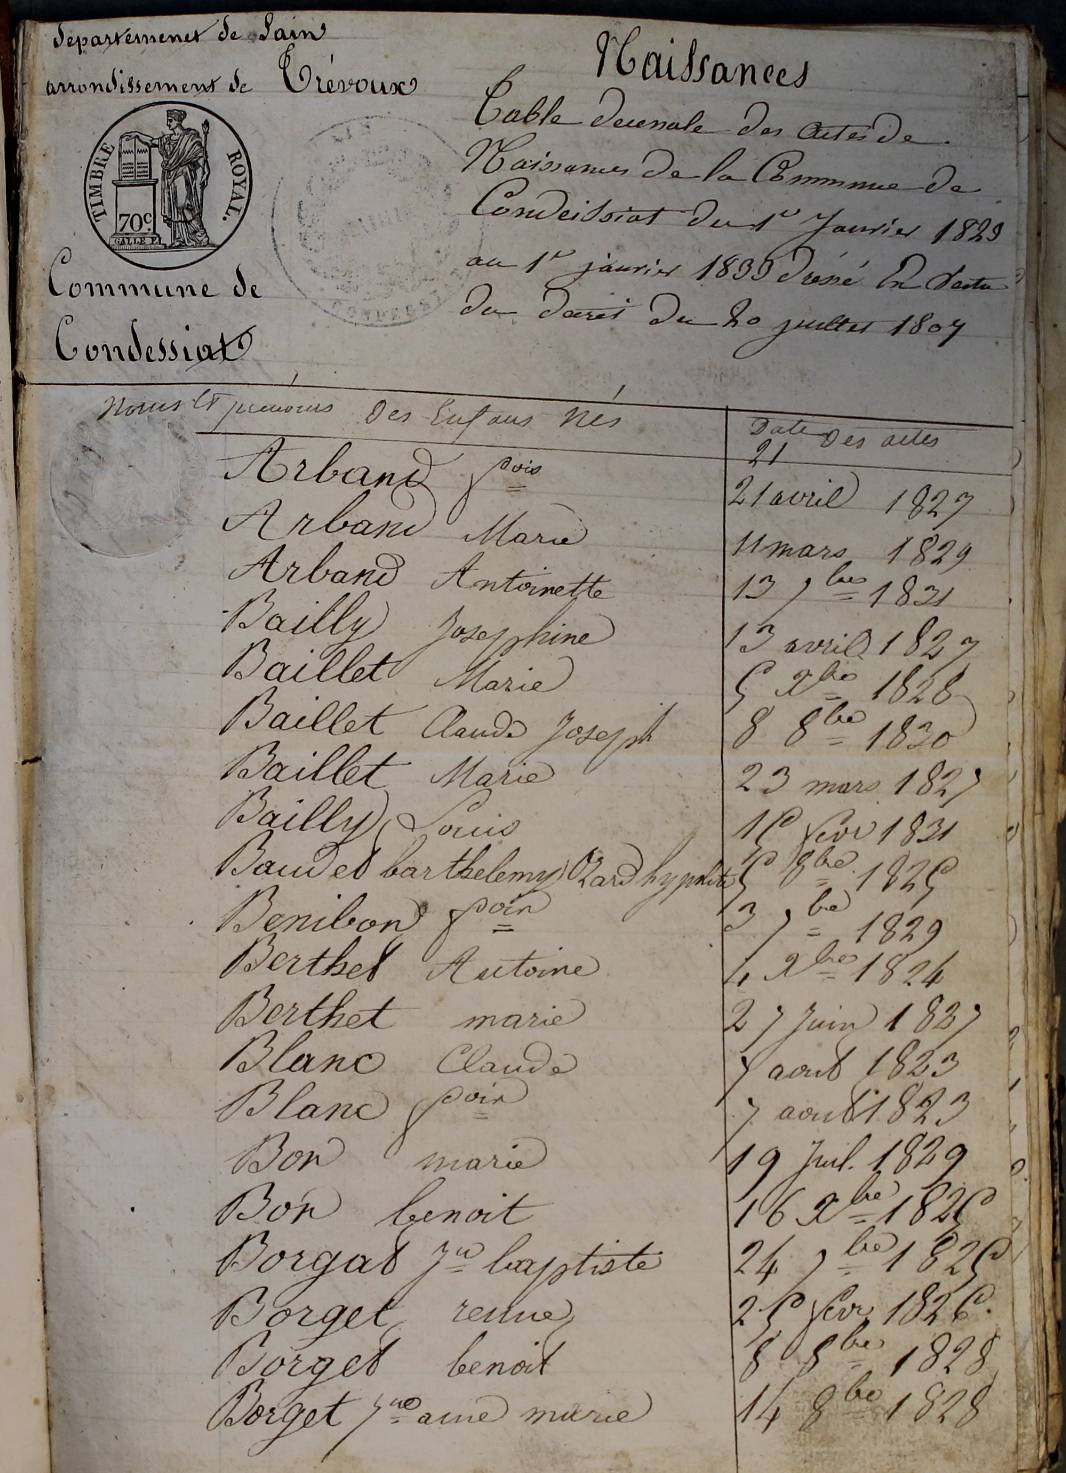 departemenet de Lain
arrondissement de Trévoux
TIMBRE ROYAL.
70c.
Commune de
Condessiat
Naissances
Table decenale des actes de
Naissances de la Commune de
Condeissiat du 1er Janvier 1823
au 1er janvier 1833 dressé En Vertu
du decret du 20 juillet 1807
Noms et prénoms Des Enfans Nés
Date Des actes
21
Arband fcois 21 avril 1827
Arband Marie 11 mars 1829
Arband Antoinette 13 7bre 1831
Bailly Josephine 13 avril 1827
Baillet Marie 5 Xbre 1828
Baillet Claude Joseph 8 8bre 1830
Baillet Marie 23 mars 1827
Bailly Louis 15 fevr 1831
Baudet barthelemy hypolite 5 8bre 1825
Benibon fcois 3 7bre 1829
Berthet Antoine 4 Xbre 1824
Berthet marie 27 Juin 1827
Blanc Claude 7 aout 1823
Blanc fcois 7 aout 1823
Bon marie 19 Juil. 1829
Bon benoit 16 Xbre 1825
Borgat Jn baptiste 24 7bre 1825
Borget reine 25 fevr 1826
Borget benoit 8 8bre 1828
Borget Jne marie 14 8bre 1828